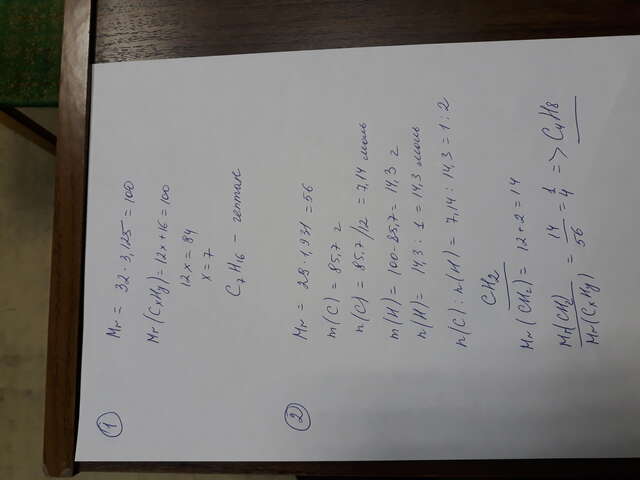 1
Mr = 32 · 3,125 = 100
Mr (CxHy) = 12x + 16 = 100
12x = 84
x = 7
C7H16 – гептан
2
Mr = 29 · 1,931 = 56
m(C) = 85,7 г
n(C) = 85,7/12 = 7,14 моль
m(H) = 100-85,7 = 14,3 г
n(H) = 14,3 : 1 = 14,3 моль
n(C) : n(H) = 7,14 : 14,3 = 1 : 2
CH2
Mr (CH2) = 12 + 2 = 14
Mr(CH2)/Mr(CxHy) = 14/56 = 1/4 => C4H8